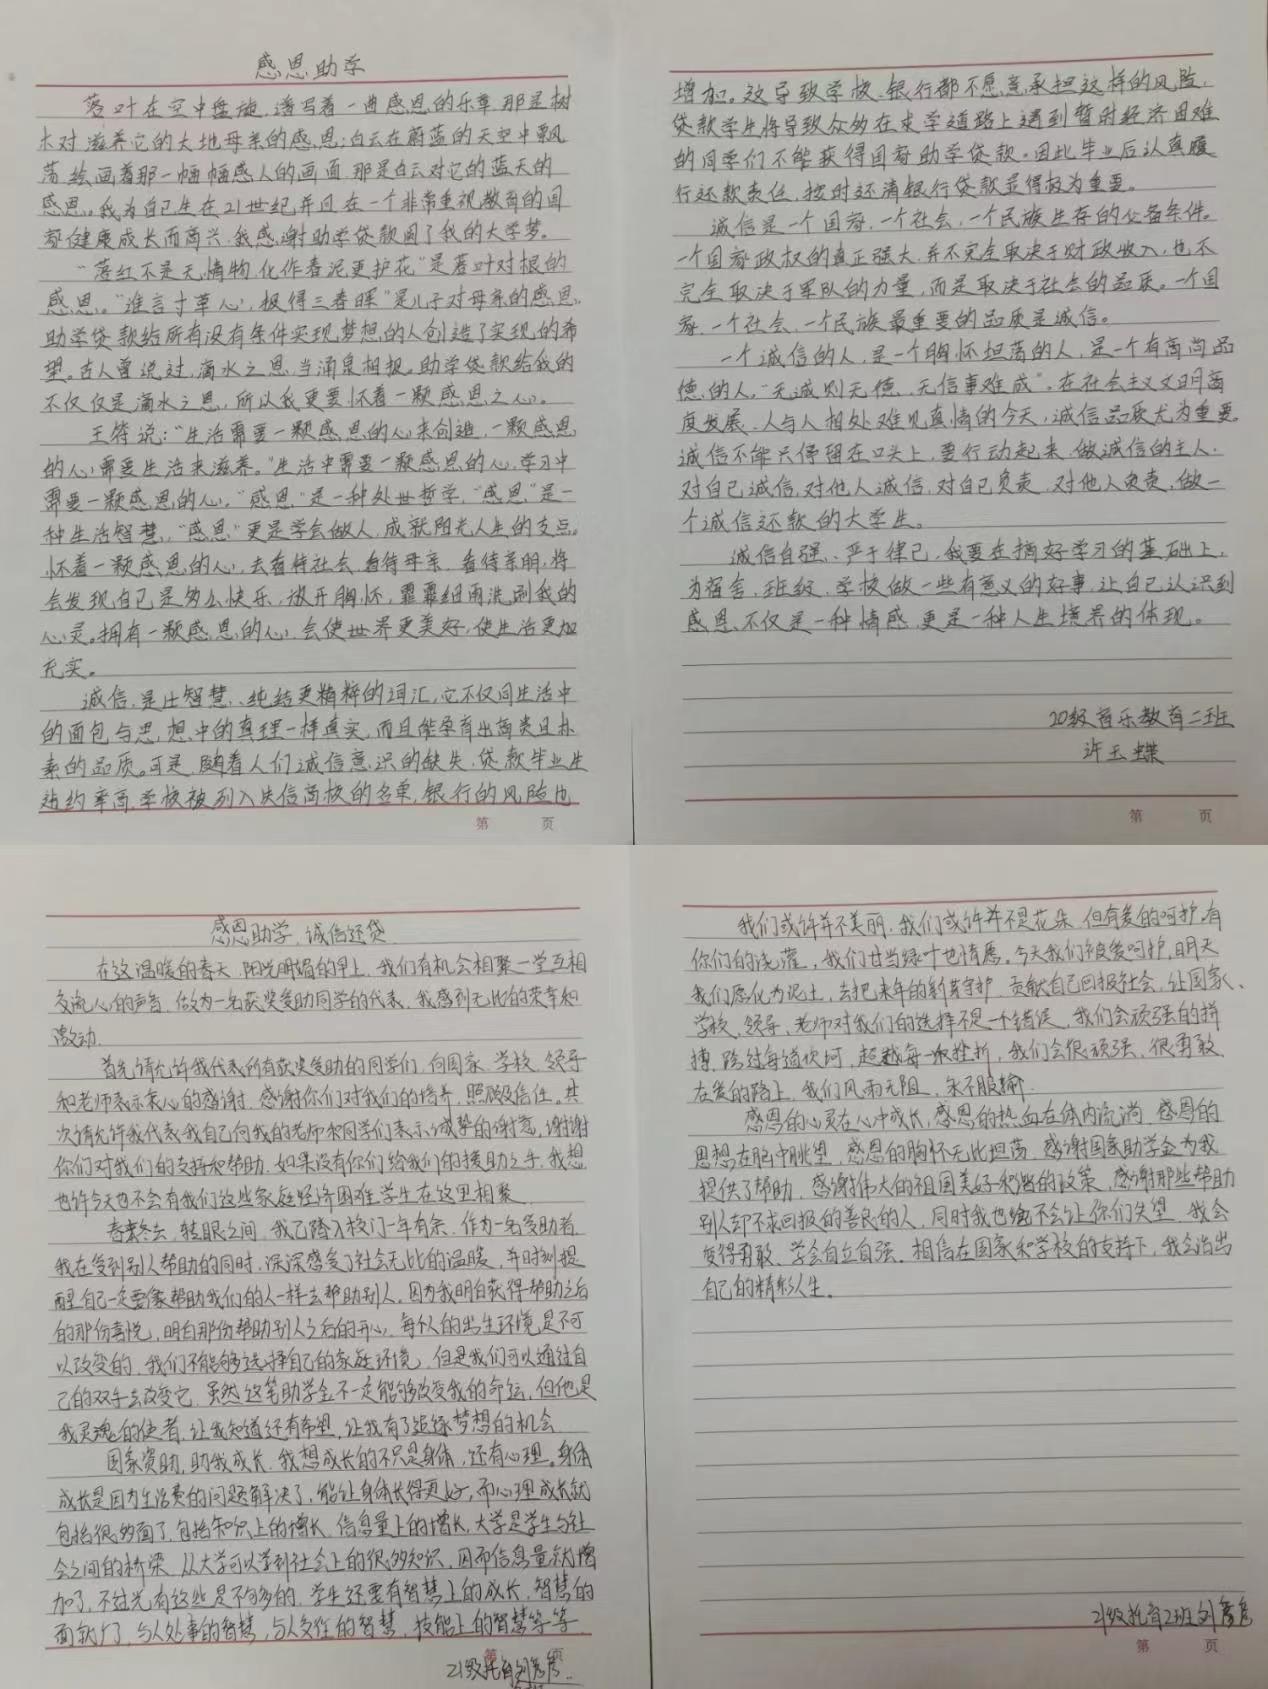 感恩助学
落叶在空中盘旋,谱写着一曲感恩的乐章,那是树
木对滋养它的大地母亲的感恩;白云在蔚蓝的天空中飘
荡,绘画着那一幅幅感人的画面,那是白云对它的蓝天的
感恩。我为自己生在21世纪并且在一个非常重视教育的国
家健康成长而高兴,我感谢助学贷款圆了我的大学梦。
“落红不是无情物,化作春泥更护花”是落叶对根的
感恩。“谁言寸草心,报得三春晖”是儿子对母亲的感恩。
助学贷款给所有没有条件实现梦想的人创造了实现的希
望。古人曾说过,滴水之恩,当涌泉相报。助学贷款给我的
不仅仅是滴水之恩,所以我更要怀着一颗感恩之心。
王符说:“生活需要一颗感恩的心来创造,一颗感恩
的心需要生活来滋养。”生活中需要一颗感恩的心,学习中
需要一颗感恩的心。“感恩”是一种处世哲学,“感恩”是一
种生活智慧,“感恩”更是学会做人,成就阳光人生的支点。
怀着一颗感恩的心,去看待社会,看待母亲,看待亲朋,将
会发现自己是多么快乐,放开胸怀,霏霏细雨洗刷我的
心灵。拥有一颗感恩的心,会使世界更美好,使生活更加
充实。
诚信,是比智慧、纯结更精粹的词汇,它不仅同生活中
的面包与思想中的真理一样真实,而且能孕育出高贵且朴
素的品质。可是,随着人们诚信意识的缺失,贷款毕业生
违约率高,学校被列入失信高校的名单,银行的风险也
增加。这导致学校、银行都不愿意承担这样的风险,
贷款学生将导致众多在求学道路上遇到暂时经济困难
的同学们不能获得国家助学贷款。因此毕业后认真履
行还款责任,按时还清银行贷款显得极为重要。
诚信是一个国家,一个社会,一个民族生存的必备条件。
一个国家政权的真正强大,并不完全取决于财政收入,也不
完全取决于军队的力量,而是取决于社会的品质。一个国
家,一个社会,一个民族最重要的品质是诚信。
一个诚信的人,是一个胸怀坦荡的人,是一个有高尚品
德的人,“无诚则无德,无信事难成”。在社会主义文明高
度发展,人与人相处难见真情的今天,诚信品质尤为重要。
诚信不能只停留在口头上,要行动起来,做诚信的主人,
对自己诚信,对他人诚信,对自己负责,对他人负责,做一
个诚信还款的大学生。
诚信自强、严于律己,我要在搞好学习的基础上,
为宿舍、班级、学校做一些有意义的好事,让自己认识到
感恩不仅是一种情感,更是一种人生境界的体现。
20级音乐教育二班
许玉蝶
第 页
第 页
感恩助学,诚信还贷
在这温暖的春天,阳光明媚的早上,我们有机会相聚一堂互相
交流心的声音,做为一名获奖受助同学的代表,我感到无比的荣幸和
激动.
首先请允许我代表所有获奖受助的同学们,向国家、学校、领导
和老师表示衷心的感谢,感谢你们对我们的培养,照顾及信任。其
次请允许我代表我自己向我的老师和同学们表示诚挚的谢意,谢谢
你们对我们的支持和帮助.如果没有你们给我们的援助之手,我想
也许今天也不会有我们这些家庭经济困难学生在这里相聚.
春来冬去,转眼之间,我已踏入校门一年有余,作为一名受助者,
我在受到别人帮助的同时,深深感受了社会无比的温暖,并时刻提
醒自己一定要像帮助我们的人一样去帮助别人,因为我明白获得帮助之后
的那份喜悦,明白那份帮助别人之后的开心.每个人的出生环境是不可
以改变的,我们不能够选择自己的家庭环境,但是我们可以通过自
己的双手去改变它,虽然这笔助学金不一定能够改变我的命运,但他是
我灵魂的使者,让我知道还有希望,让我有了追逐梦想的机会.
国家资助,助我成长,我想成长的不只是身体,还有心理。身体
成长是因为生活费的问题解决了,能让身体长得更好,而心理成长就
包括很多面了,包括知识上的增长,信息量上的增长,大学是学生与社
会之间的桥梁,从大学可以学到社会上的很多知识,因而信息量就增
加了,不过光有这些是不够多的,学生还要有智慧上的成长,智慧的
面就广了,与人处事的智慧,与人交往的智慧,技能上的智慧等等.
第 页
我们或许并不美丽,我们或许并不是花朵,但有爱的呵护,有
你们的浇灌,我们甘当绿叶也情愿。今天我们被爱呵护,明天
我们愿化为泥土,去把来年的新芽守护,贡献自己回报社会,让国家、
学校、领导、老师对我们的选择不是一个错误,我们会顽强的拼
搏,跨过每道坎坷,超越每一次挫折,我们会很顽强、很勇敢,
在爱的路上,我们风雨无阻,永不服输.
感恩的心灵在心中成长,感恩的热血在体内流淌,感恩的
思想在脑中眺望,感恩的胸怀无比坦荡,感谢国家助学金为我
提供了帮助,感谢伟大的祖国美好和谐的政策,感谢那些帮助
别人却不求回报的善良的人,同时我也绝不会让你们失望,我会
变得勇敢、学会自立自强,相信在国家和学校的支持下,我会活出
自己的精彩人生。
第 页